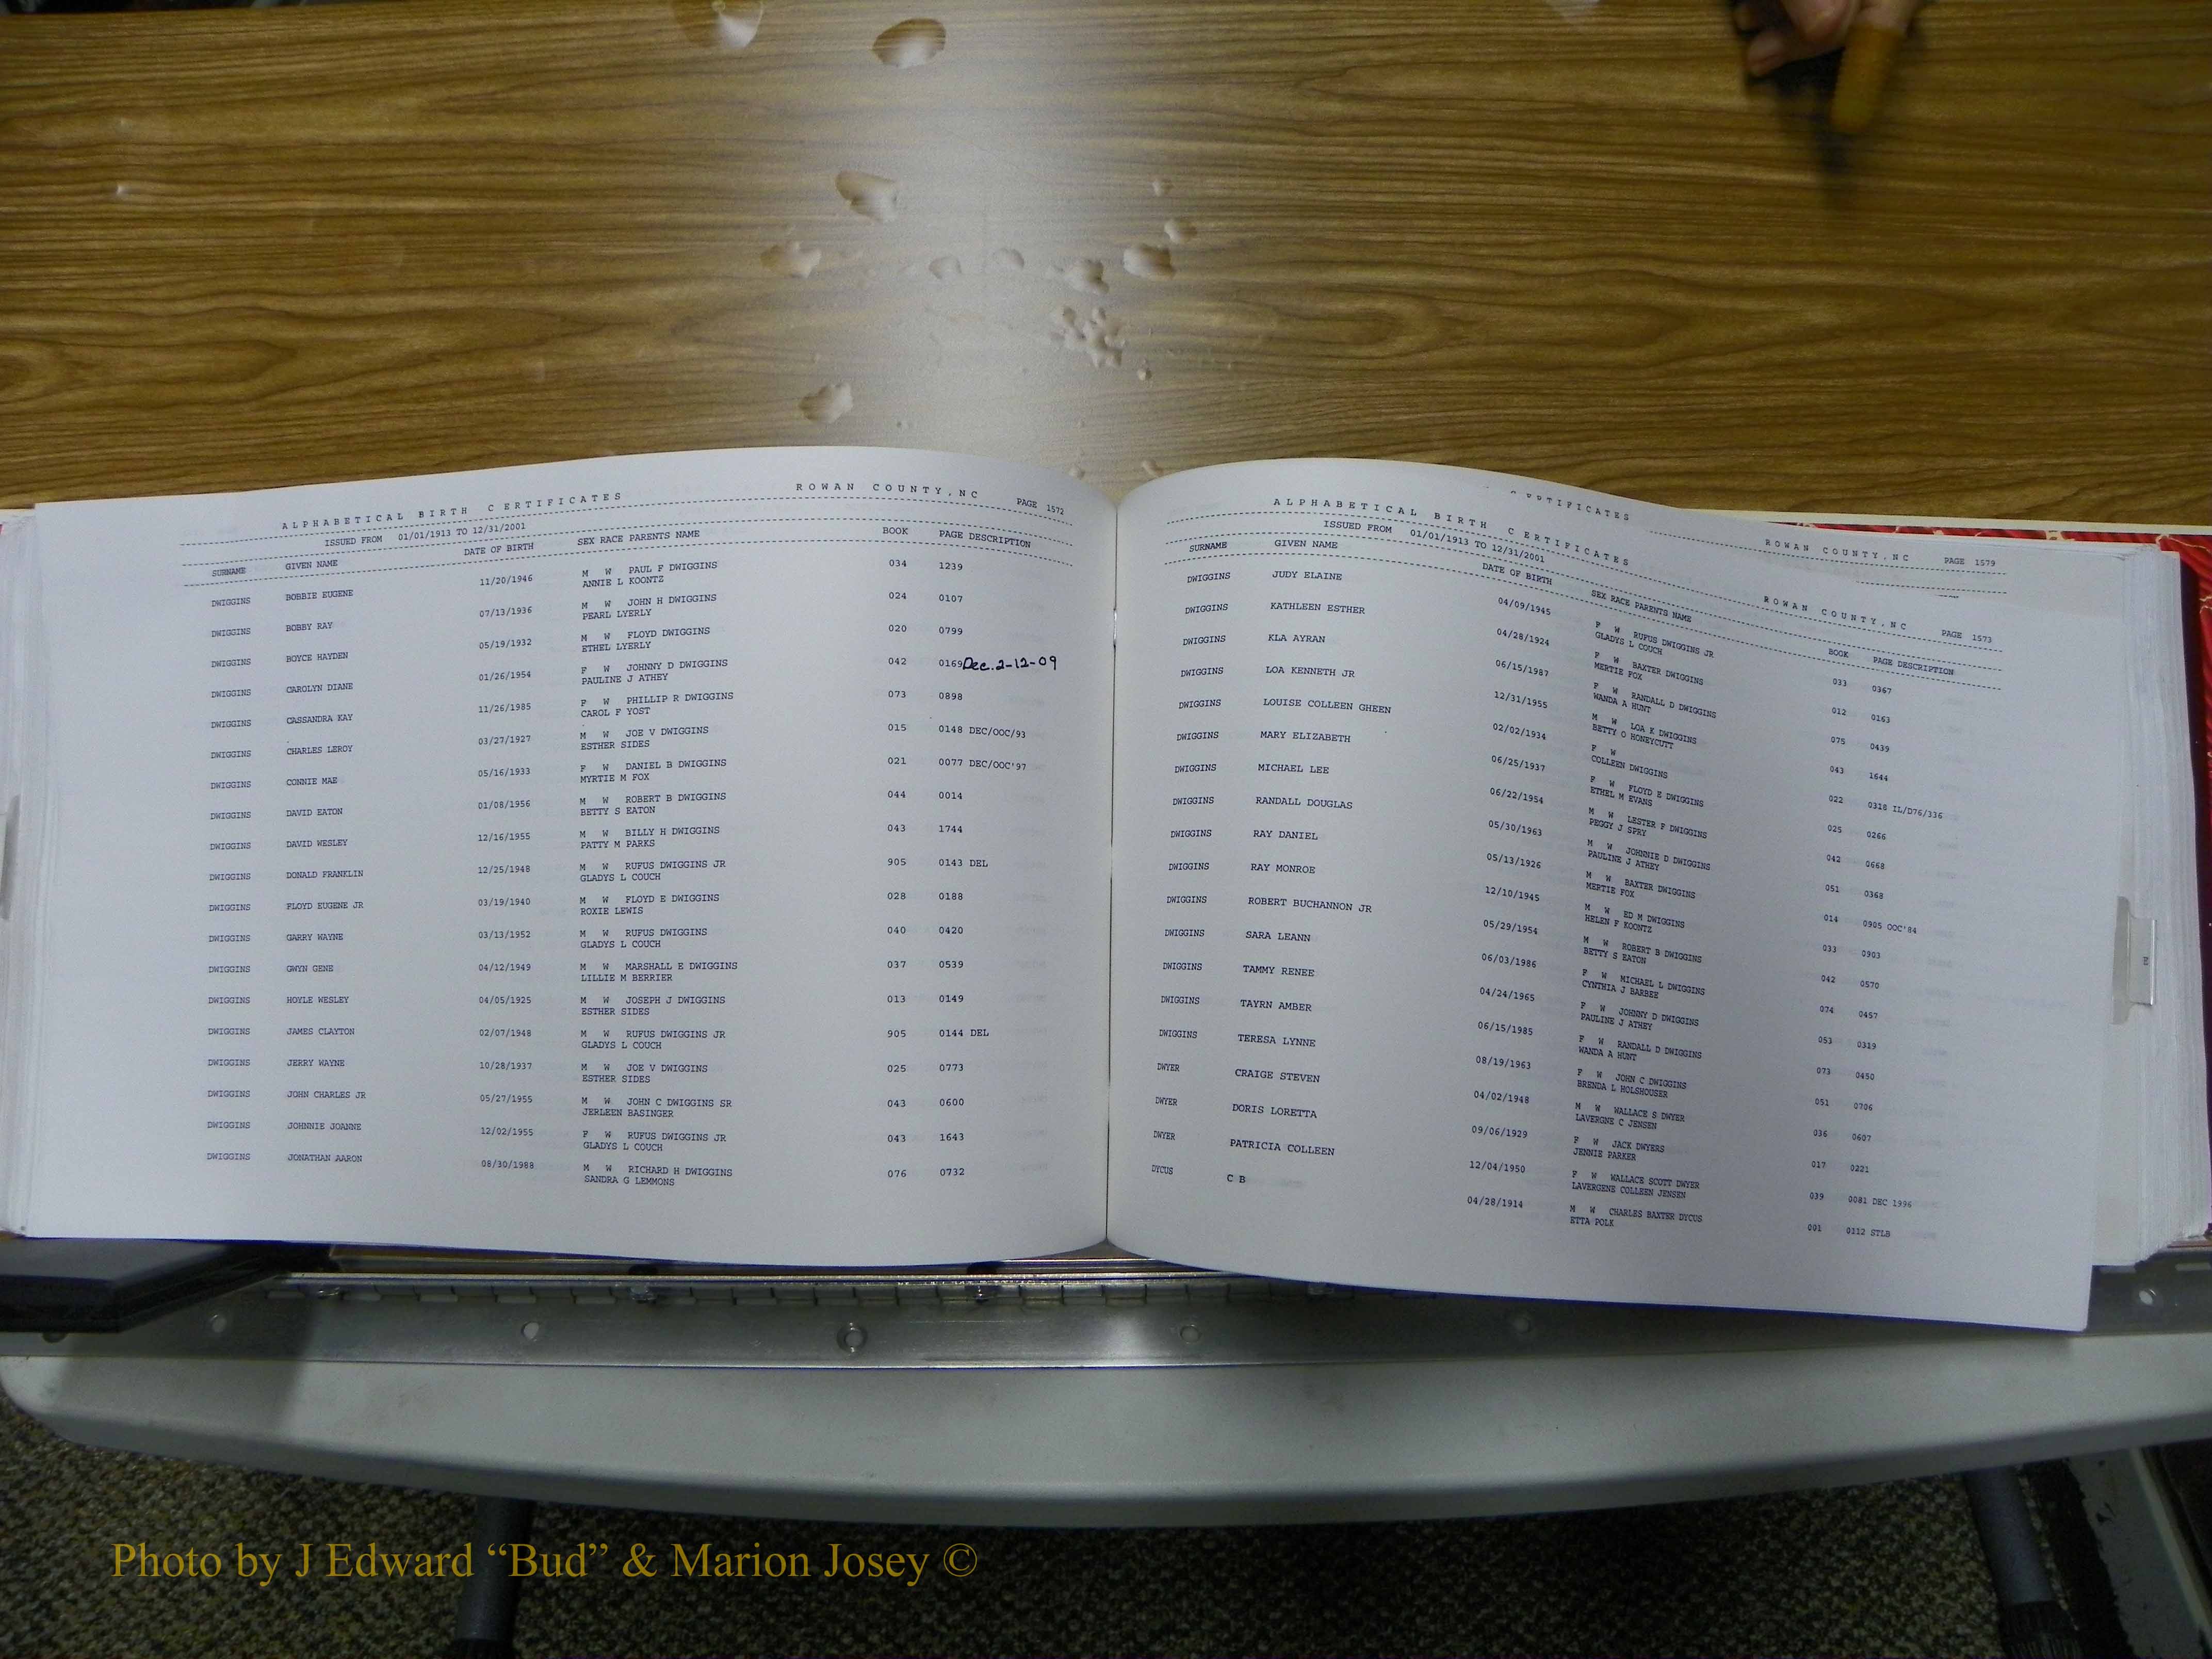 ALPHABETICAL BIRTH CERTIFICATES ROWAN COUNTY,NC PAGE 1572
ISSUED FROM 01/01/1913 TO 12/31/2001
SURNAME GIVEN NAME DATE OF BIRTH SEX RACE PARENTS NAME BOOK PAGE DESCRIPTION
DWIGGINS BOBBIE EUGENE 11/20/1946 M W PAUL F DWIGGINS 034 1239
ANNIE L KOONTZ
DWIGGINS BOBBY RAY 07/13/1936 M W JOHN H DWIGGINS 024 0107
PEARL LYERLY
DWIGGINS BOYCE HAYDEN 05/19/1932 M W FLOYD DWIGGINS 020 0799
ETHEL LYERLY
DWIGGINS CAROLYN DIANE 01/26/1954 F W JOHNNY D DWIGGINS 042 0169 Dec. 2-12-09
PAULINE J ATHEY
DWIGGINS CASSANDRA KAY 11/26/1985 F W PHILLIP R DWIGGINS 073 0898
CAROL F YOST
DWIGGINS CHARLES LEROY 03/27/1927 M W JOE V DWIGGINS 015 0148 DEC/OOC/93
ESTHER SIDES
DWIGGINS CONNIE MAE 05/16/1933 F W DANIEL B DWIGGINS 021 0077 DEC/OOC'97
MYRTIE M FOX
DWIGGINS DAVID EATON 01/08/1956 M W ROBERT B DWIGGINS 044 0014
BETTY S EATON
DWIGGINS DAVID WESLEY 12/16/1955 M W BILLY H DWIGGINS 043 1744
PATTY M PARKS
DWIGGINS DONALD FRANKLIN 12/25/1948 M W RUFUS DWIGGINS JR 905 0143 DEL
GLADYS L COUCH
DWIGGINS FLOYD EUGENE JR 03/19/1940 M W FLOYD E DWIGGINS 028 0188
ROXIE LEWIS
DWIGGINS GARRY WAYNE 03/13/1952 M W RUFUS DWIGGINS 040 0420
GLADYS L COUCH
DWIGGINS GWYN GENE 04/12/1949 M W MARSHALL E DWIGGINS 037 0539
LILLIE M BERRIER
DWIGGINS HOYLE WESLEY 04/05/1925 M W JOSEPH J DWIGGINS 013 0149
ESTHER SIDES
DWIGGINS JAMES CLAYTON 02/07/1948 M W RUFUS DWIGGINS JR 905 0144 DEL
GLADYS L COUCH
DWIGGINS JERRY WAYNE 10/28/1937 M W JOE V DWIGGINS 025 0773
ESTHER SIDES
DWIGGINS JOHN CHARLES JR 05/27/1955 M W JOHN C DWIGGINS SR 043 0600
JERLEEN BASINGER
DWIGGINS JOHNNIE JOANNE 12/02/1955 F W RUFUS DWIGGINS JR 043 1643
GLADYS L COUCH
DWIGGINS JONATHAN AARON 08/30/1988 M W RICHARD H DWIGGINS 076 0732
SANDRA G LEMMONS
CERTIFICATES ROWAN COUNTY,NC PAGE 1579
ALPHABETICAL BIRTH CERTIFICATES ROWAN COUNTY,NC PAGE 1573
ISSUED FROM 01/01/1913 TO 12/31/2001
SURNAME GIVEN NAME DATE OF BIRTH SEX RACE PARENTS NAME BOOK PAGE DESCRIPTION
DWIGGINS JUDY ELAINE 04/09/1945 F W RUFUS DWIGGINS JR 033 0367
GLADYS L COUCH
DWIGGINS KATHLEEN ESTHER 04/28/1924 F W BAXTER DWIGGINS 012 0163
MERTIE FOX
DWIGGINS KLA AYRAN 06/15/1987 F W RANDALL D DWIGGINS 075 0439
WANDA A HUNT
DWIGGINS LOA KENNETH JR 12/31/1955 M W LOA K DWIGGINS 043 1644
BETTY O HONEYCUTT
DWIGGINS LOUISE COLLEEN GHEEN 02/02/1934 F W 022 0318 IL/D76/336
COLLEEN DWIGGINS
DWIGGINS MARY ELIZABETH 06/25/1937 F W FLOYD E DWIGGINS 025 0266
ETHEL M EVANS
DWIGGINS MICHAEL LEE 06/22/1954 M W LESTER F DWIGGINS 042 0668
PEGGY J SPRY
DWIGGINS RANDALL DOUGLAS 05/30/1963 M W JOHNNIE D DWIGGINS 051 0368
PAULINE J ATHEY
DWIGGINS RAY DANIEL 05/13/1926 M W BAXTER DWIGGINS 014 0905 OOC'84
MERTIE FOX
DWIGGINS RAY MONROE 12/10/1945 M W ED M DWIGGINS 033 0903
HELEN F KOONTZ
DWIGGINS ROBERT BUCHANNON JR 05/29/1954 M W ROBERT B DWIGGINS 042 0570
BETTY S EATON
DWIGGINS SARA LEANN 06/03/1986 F W MICHAEL L DWIGGINS 074 0457
CYNTHIA J BARBEE
DWIGGINS TAMMY RENEE 04/24/1965 F W JOHNNY D DWIGGINS 053 0319
PAULINE J ATHEY
DWIGGINS TAYRN AMBER 06/15/1985 F W RANDALL D DWIGGINS 073 0450
WANDA A HUNT
DWIGGINS TERESA LYNNE 08/19/1963 F W JOHN C DWIGGINS 051 0706
BRENDA L HOLSHOUSER
DWYER CRAIGE STEVEN 04/02/1948 M W WALLACE S DWYER 036 0607
LAVERGNE C JENSEN
DWYER DORIS LORETTA 09/06/1929 F W JACK DWYERS 017 0221
JENNIE PARKER
DWYER PATRICIA COLLEEN 12/04/1950 F W WALLACE SCOTT DWYER 039 0081 DEC 1996
LAVERGENE COLLEEN JENSEN
DYCUS C B 04/28/1914 M W CHARLES BAXTER DYCUS 001 0112 STLB
ETTA POLK
Photo by J Edward “Bud” & Marion Josey ©